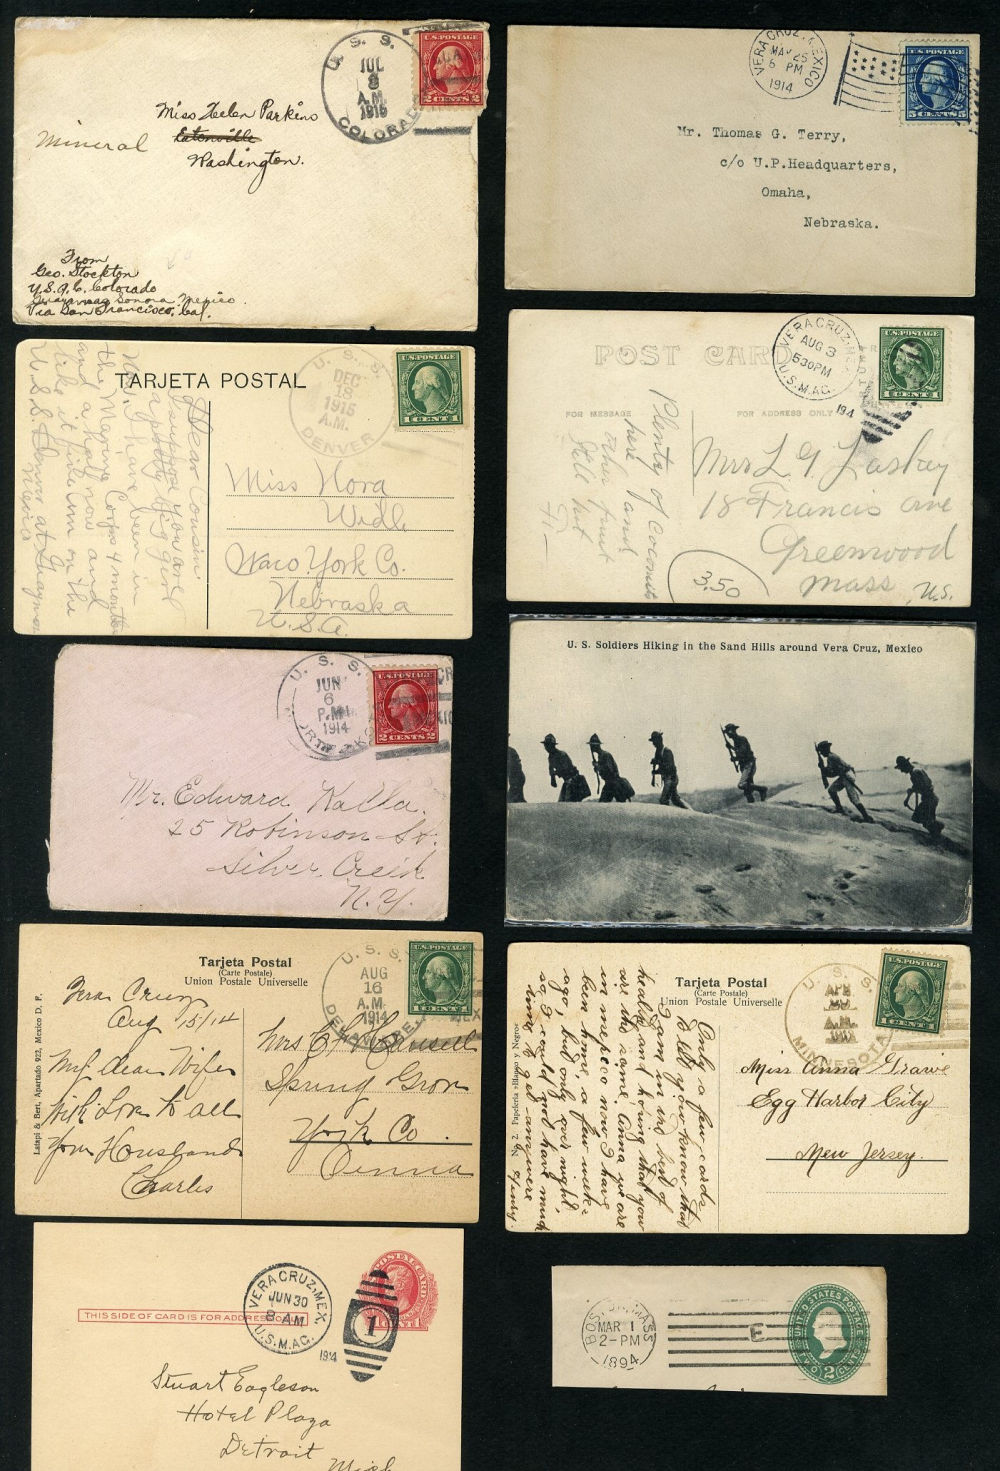 U. S. S.
JUL
8
A.M.
1915
COLORADO
U.S. POSTAGE
2 CENTS 2
Miss Helen Parkins
Mineral
Eatonville
Washington.
From
Geo. Stockton
U.S.S. Colorado
Guaymas Sonora Mexico.
Via San Francisco, Cal.
VERA CRUZ, MEXICO
MAY 25
6 PM
1914
U.S. POSTAGE
5 CENTS 5
Mr. Thomas G. Terry,
c/o U.P.Headquarters,
Omaha,
Nebraska.
TARJETA POSTAL
U. S. S.
DEC
18
1915
A.M.
DENVER
U.S. POSTAGE
1 CENT 1
Dear Cousin
I suppose you are
a pretty big girl
now. I have been in
the Marine Corps 4 months
and a half now and
like it fine am on the
U.S.S. Denver at Guaymas
Mexico
Miss Nora
Widle
Waco York Co.
Nebraska
U.S.A.
POST CARD
VERA CRUZ, MEX.
AUG 3
530PM
U.S.M.AG.
1914
U.S. POSTAGE
1 CENT 1
FOR MESSAGE
FOR ADDRESS ONLY
Plenty of Coconuts
here and
other fruit
Mrs L G Laskey
18 Francis ave
Greenwood
Mass
U.S.
3.50
U. S. S.
JUN
6
P.M.
1914
U.S. POSTAGE
2 CENTS 2
Mr. Edward Kalla.
25 Robinson St.
Silver Creek
N. Y.
U. S. Soldiers Hiking in the Sand Hills around Vera Cruz, Mexico
Tarjeta Postal
(Carte Postale)
Union Postale Universelle
U. S. S.
AUG
16
A.M.
1914
DELAWARE
U.S. POSTAGE
1 CENT 1
Latapi & Bert, Apartado 922, Mexico D. F.
Vera Cruz
Aug 15/14
My Dear Wife
With Love to all
Your Housband
Charles
Spring Grove
York Co.
Penna
Tarjeta Postal
(Carte Postale)
Union Postale Universelle
U. S. S.
MINNESOTA
U.S. POSTAGE
1 CENT 1
No 2. Papeleria »Blanco y Negro«
Only a few cards
to let you know that
I am in the best of
health and hoping that you
are the same Anna we are
in mexico now I have
been here a few weeks
ago, but only over night,
so I could not have much
time to get anywere
Henry
Miss Anna Grawe
Egg Harbor City
New Jersey.
VERA CRUZ, MEX.
JUN 30
8 AM
U.S.M.AG.
1914
1
POSTAL CARD
1 CENT 1
THIS SIDE OF CARD IS FOR ADDRESS
Stuart Eagleson
Hotel Plaza
Detroit
Mich
BOSTON, MASS
MAR 1
2-PM
1894
E
UNITED STATES POSTAGE
TWO 2 CENTS